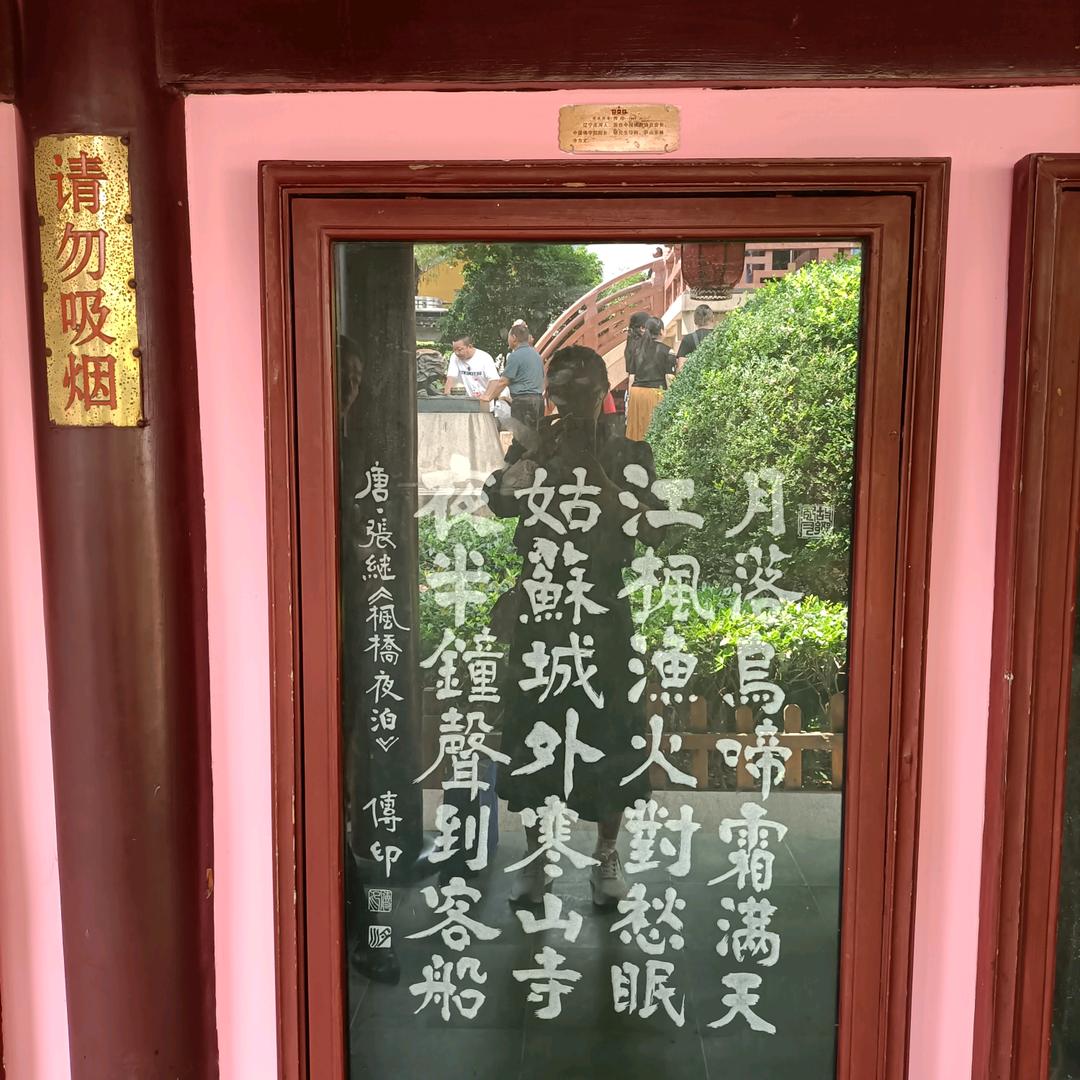 请勿吸烟
月落烏啼霜滿天
江楓漁火對愁眠
姑蘇城外寒山寺
夜半鐘聲到客船
唐·張繼《楓橋夜泊》 傳印